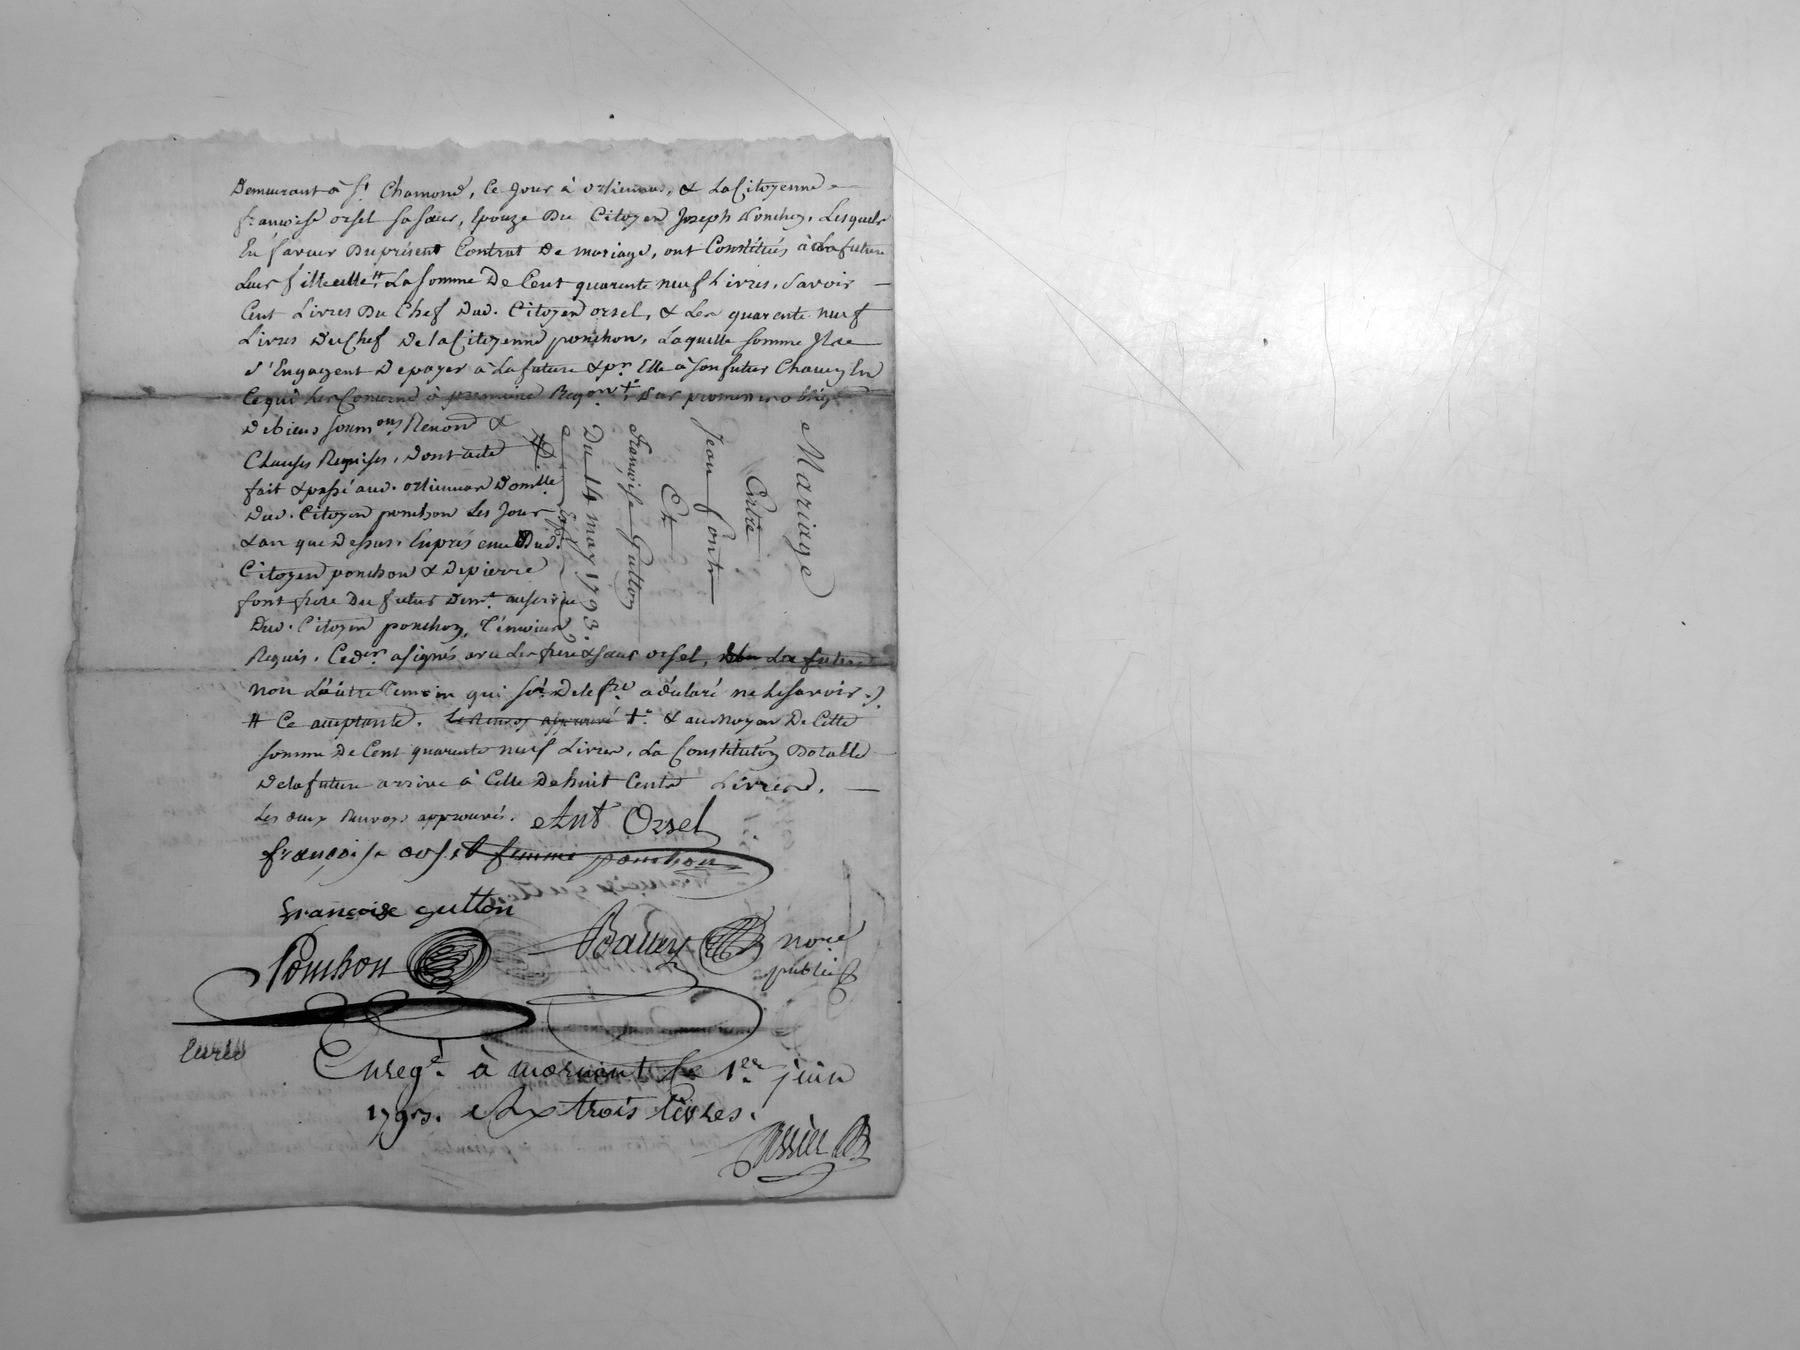 Demeurant à St. Chamond, Ce Jour à orlienas, & La Citoyenne
françoise orsel sa sœur, Epouze Du Citoyen Joseph Ponchon, Lesquels
En faveur Du présent Contrat De mariage, ont Constitués à La future
Leur filleulle #, La somme De Cent quarente neuf Livres, savoir
Cent Livres Du Chef Dud. Citoyen orsel, & Les quarente neuf
Livres Du Chef De la Citoyenne ponchon, Laquelle somme Ils
s'Engagent De payer à La future & pr. Elle à son futur Chacun En
Ce qui Les Concerne à premiere Reqon. +, Par promesses oblig
De biens soumons. Renond. &
Clauses Requises, Dont acte
fait & passé aud. orlienas Domlle.
Dud. Citoyen ponchon Les Jour
& an que Dessus, En présence Dud.
Citoyen ponchon & De pierre
font frere Du futur Demt. au service
Dud. Citoyen ponchon, Témoins
Requis. Ce der. a signés avec Les frere & sœur orsel, La future
non L'autre Témoin qui sr. De le fre. a déclaré ne Le savoir ./.
# Ce acceptante. Le Renvoy approuvé +. & au moyen De Cette
somme De Cent quarente neuf Livres, La Constitution Dotalle
De la future arrive à Celle De huit Cents Livres.
Les deux Renvoys approuvés. Ant Orsel
françoise orsel femme ponchon
françoise gutton
Ponchon Balley nore
public
Enregé. à mornant le 1er juin
1793. trois livres.
Mariage
Entre
Jean font
Et
françoise Gutton
Du 14 may 1793.